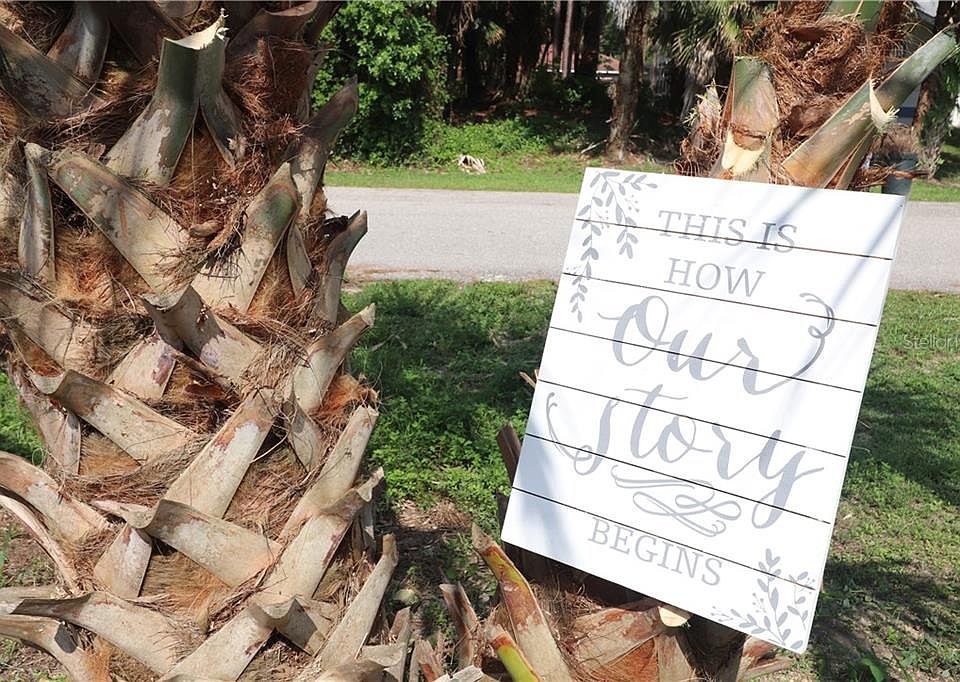 THIS IS
HOW
Our
Story
BEGINS